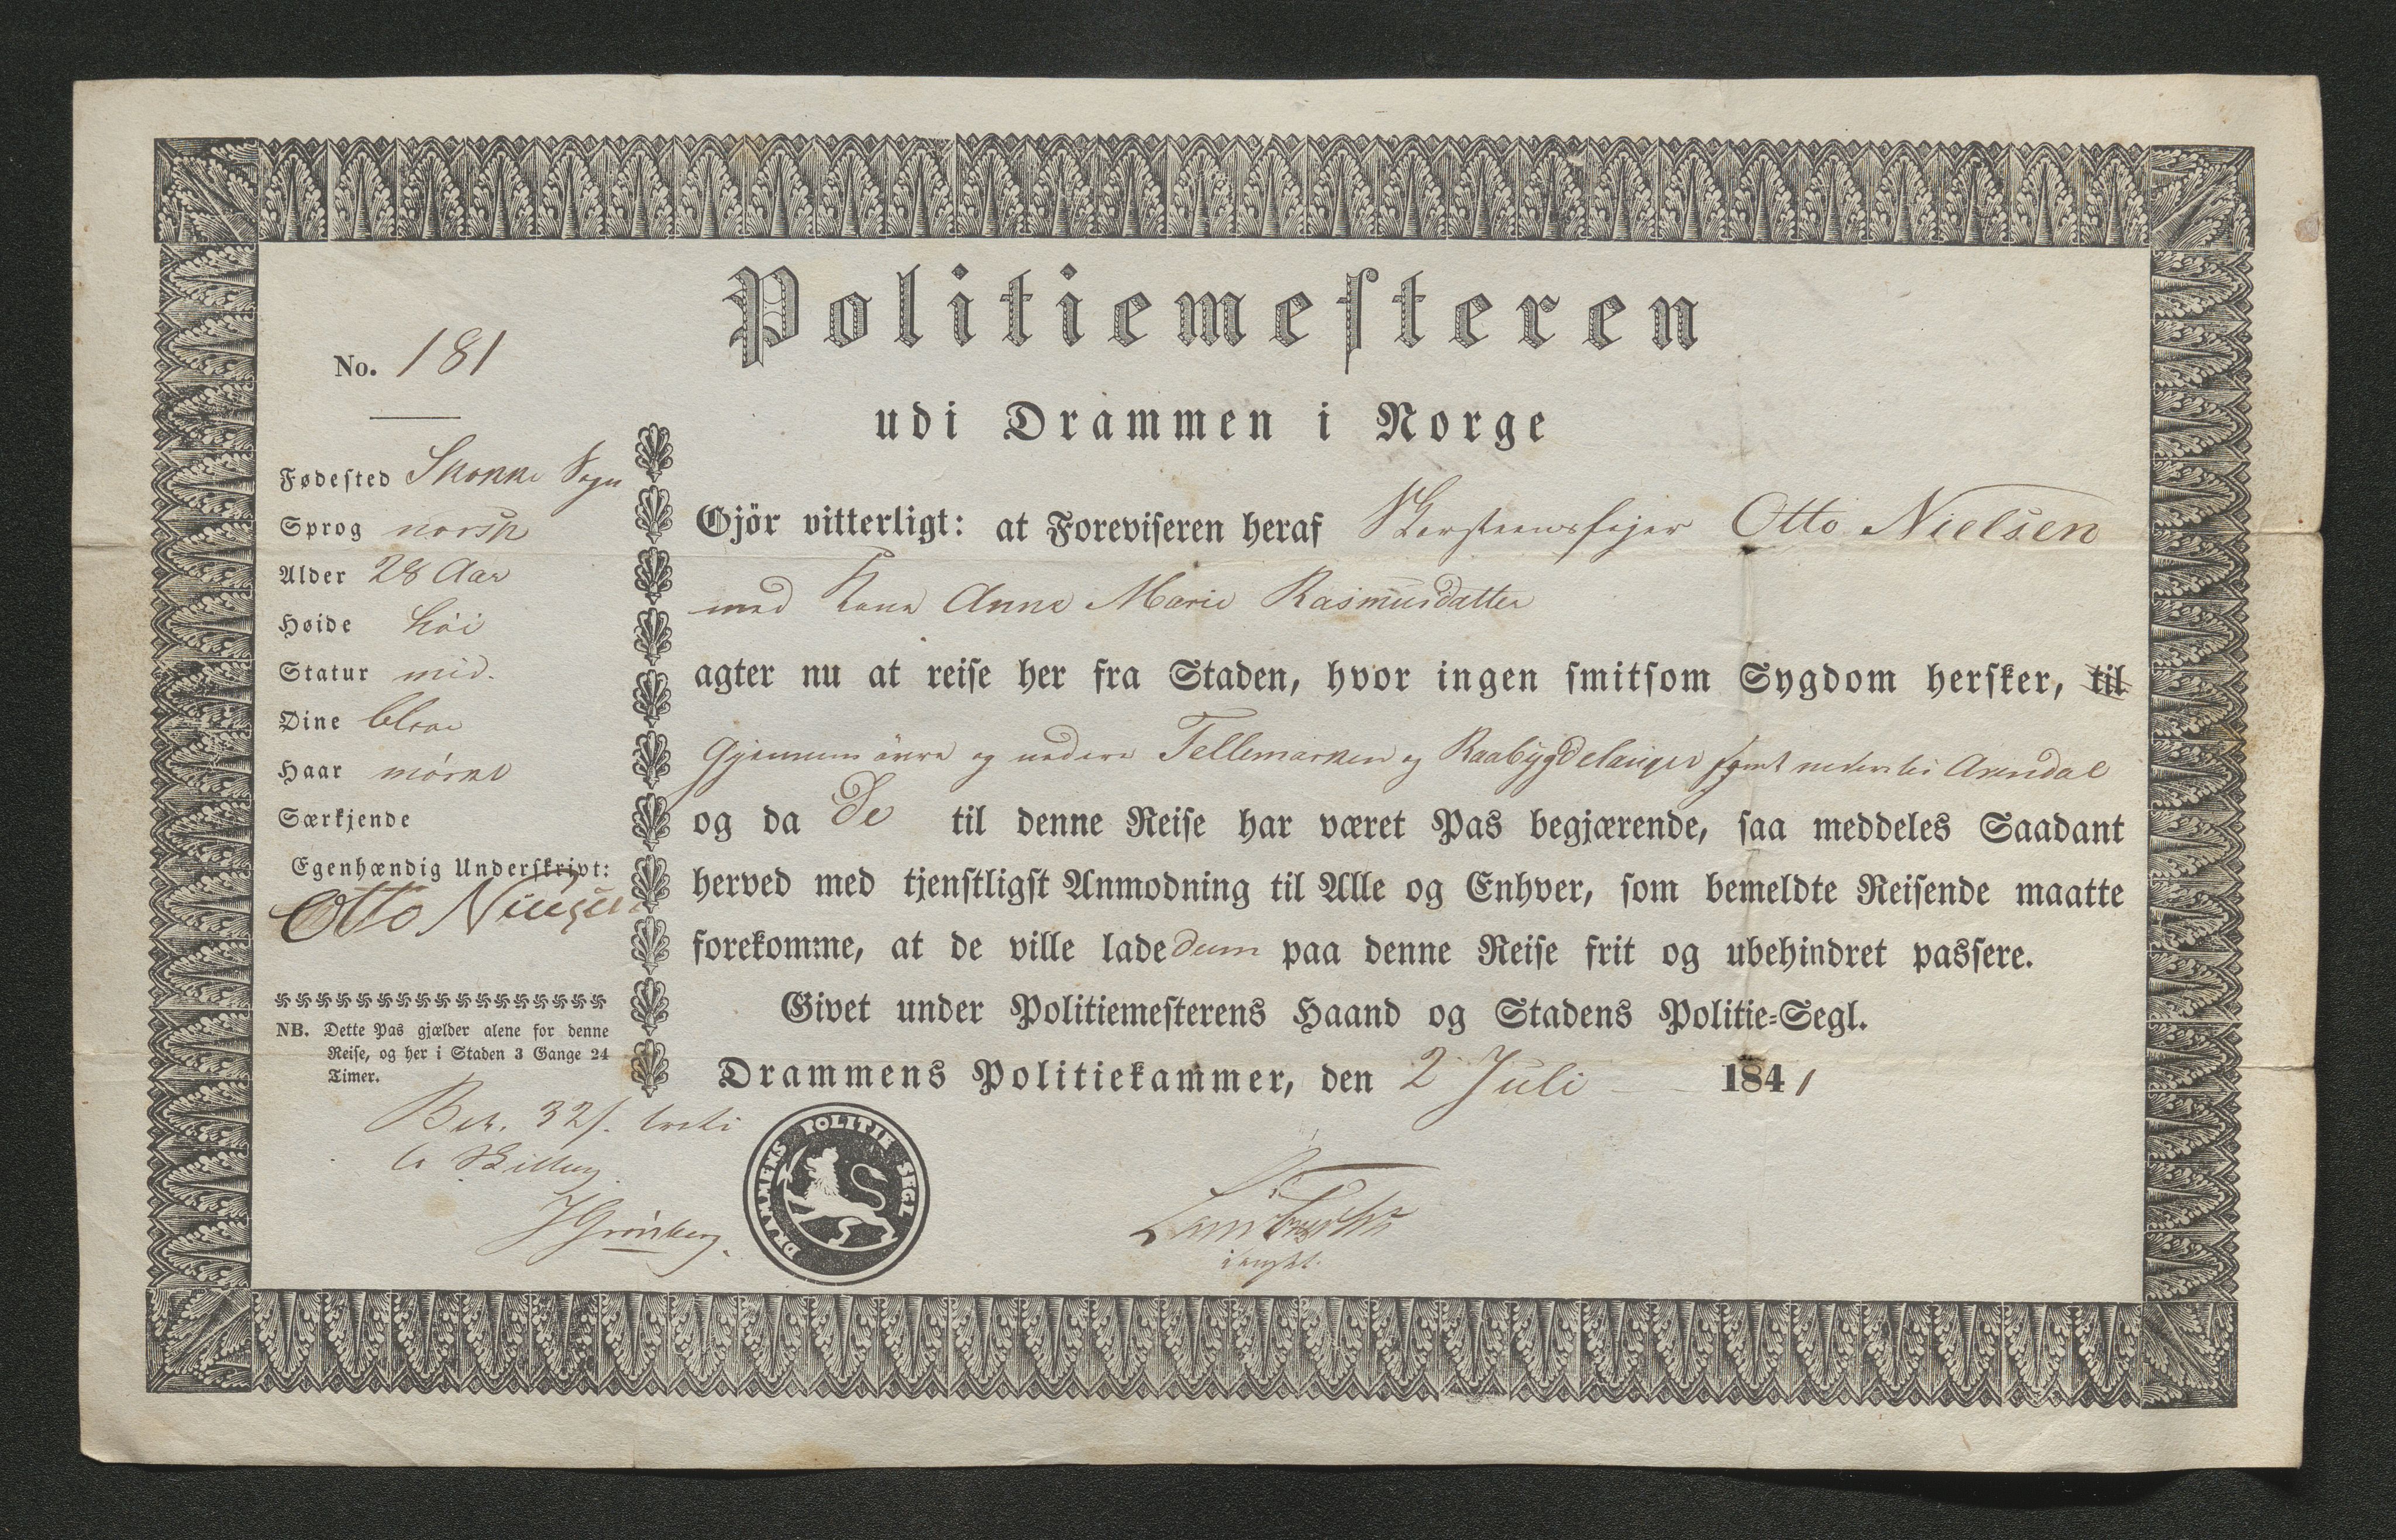 Politiemesteren
udi Drammen i Norge
No. 181
Fødested Skonne Sogn
Sprog norsk
Alder 28 Aar
Høide høi
Statur mid.
Øine blaae
Haar mørkt
Særkjende
Egenhændig Underskrivt:
Otto Nielsen
NB. Dette Pas gjælder alene for denne
Reise, og her i Staden 3 Gange 24
Timer.
Bet. 32 s.
Skilling
JGrønberg.
Gjör vitterligt: at Foreviseren heraf Skorsteensfejer Otto Nielsen
med Kone Anne Marie Rasmusdatter
agter nu at reise her fra Staden, hvor ingen smitsom Sygdom hersker, til
Gjennem övre og nedere Tellemarken og Raabygdelauget samt Arendal
og da De til denne Reise har været Pas begjærende, saa meddeles Saadant
herved med tjenstligst Anmodning til Alle og Enhver, som bemeldte Reisende maatte
forekomme, at de ville lade dem paa denne Reise frit og ubehindret passere.
Givet under Politiemesterens Haand og Stadens Politie-Segl.
Drammens Politiekammer, den 2 Juli 1841
DRAMMENS POLITIE SEGL